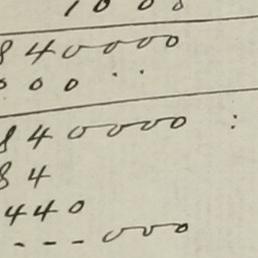 1008
840000
000..
840000 :
84
440
---000